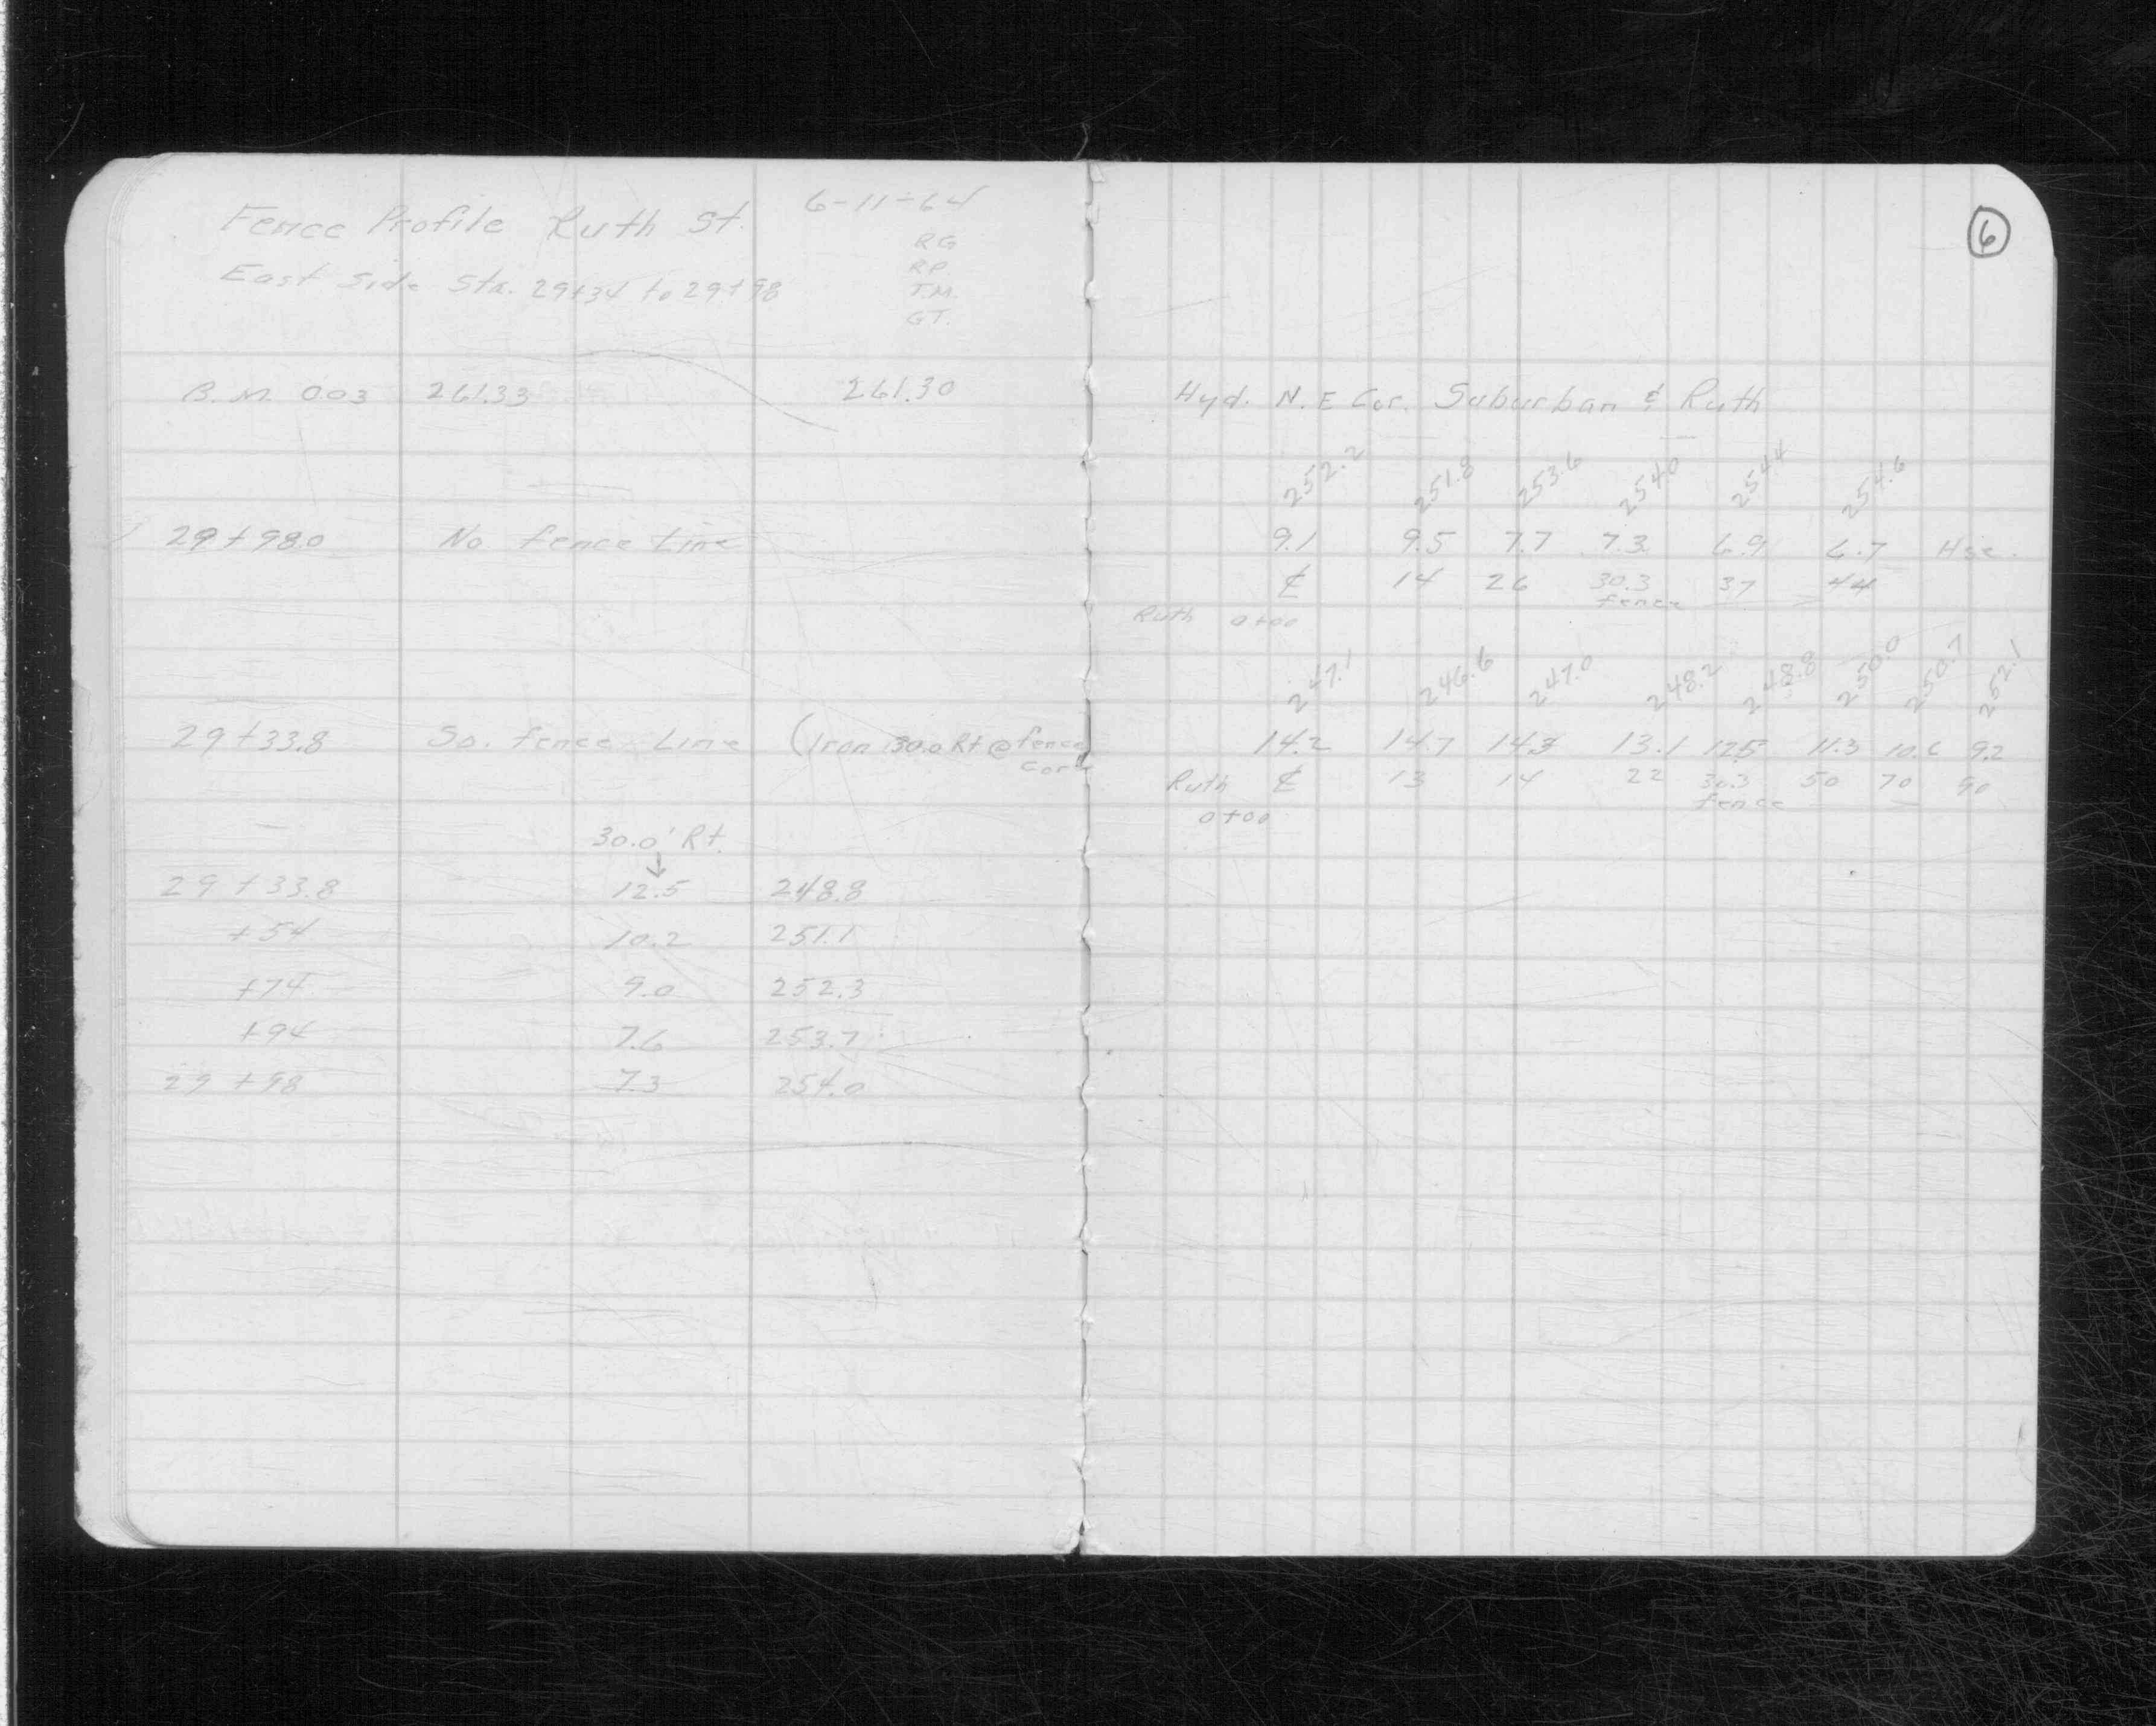 Fence Profile Ruth St. 6-11-64
RG
East Side Sta. 29+34 to 29+98
RP.
T.M.
GT.
B.M. 0.03 261.33 261.30
29+98.0 No. fence Line
29+33.8 So. fence Line (Iron 30.0 Rt @ fence
Cor.
30.0' Rt.
↓
29+33.8 12.5 248.8
+54 10.2 251.1
+74 9.0 252.3
+94 7.6 253.7
29+98 7.3 254.0
6
Hyd. N.E Cor. Suburban & Ruth
252.2 251.8 253.6 254.0 254.4 254.6
9.1 9.5 7.7 7.3 6.9 6.7 Hse.
℄ 14 26 30.3 37 44
fence
Ruth 0+00
247.1 246.6 247.0 248.2 248.8 250.0 250.7 252.1
14.2 14.7 14.3 13.1 12.5 11.3 10.6 9.2
Ruth ℄ 13 14 22 30.3 50 70 90
fence
0+00